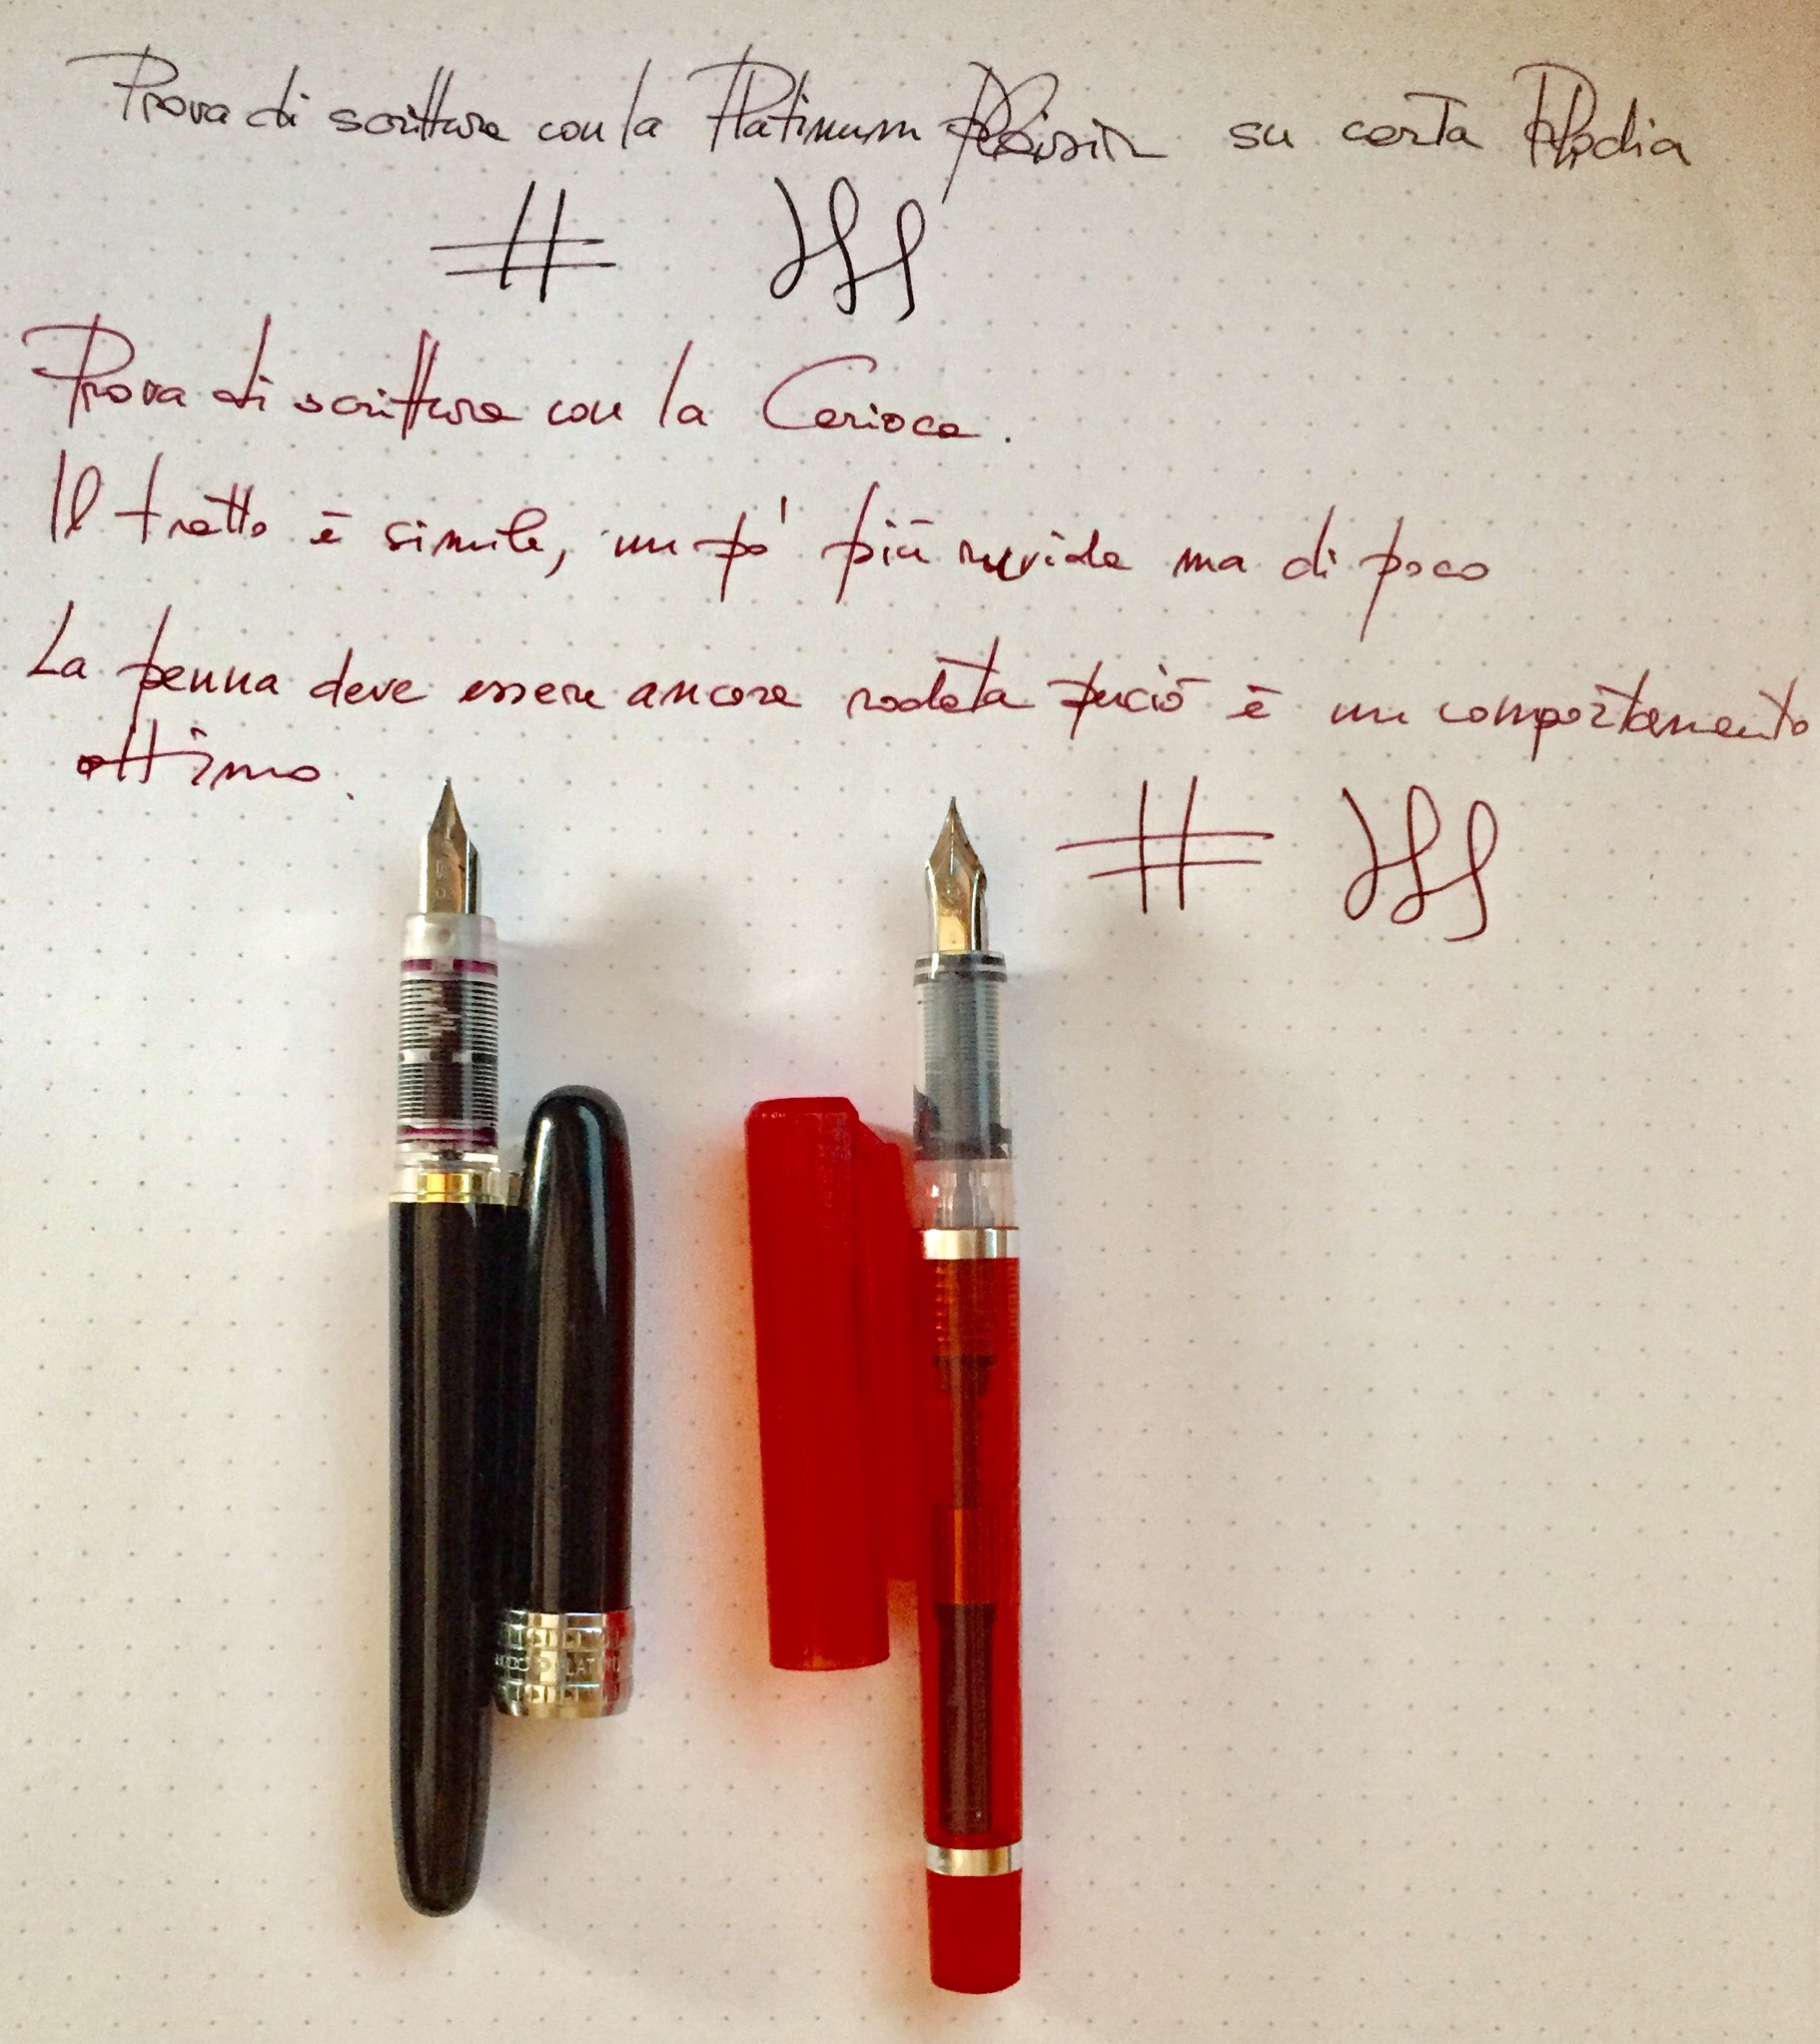 Prova di scrittura con la Platinum Plaisir su carta Rhodia
Prova di scrittura con la Carioca.
Il tratto è simile, un po' più ruvida ma di poco
La penna deve essere ancora rodata perciò è un comportamento
ottimo.